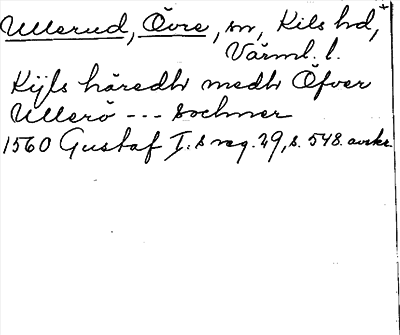 Ullerud, Övre, sn, Kils hd,
Värml. l.
Kijls häredh medh Öfver
Ullerö --- sochner
1560 Gustaf I:s reg. 29, s. 548. avskr.